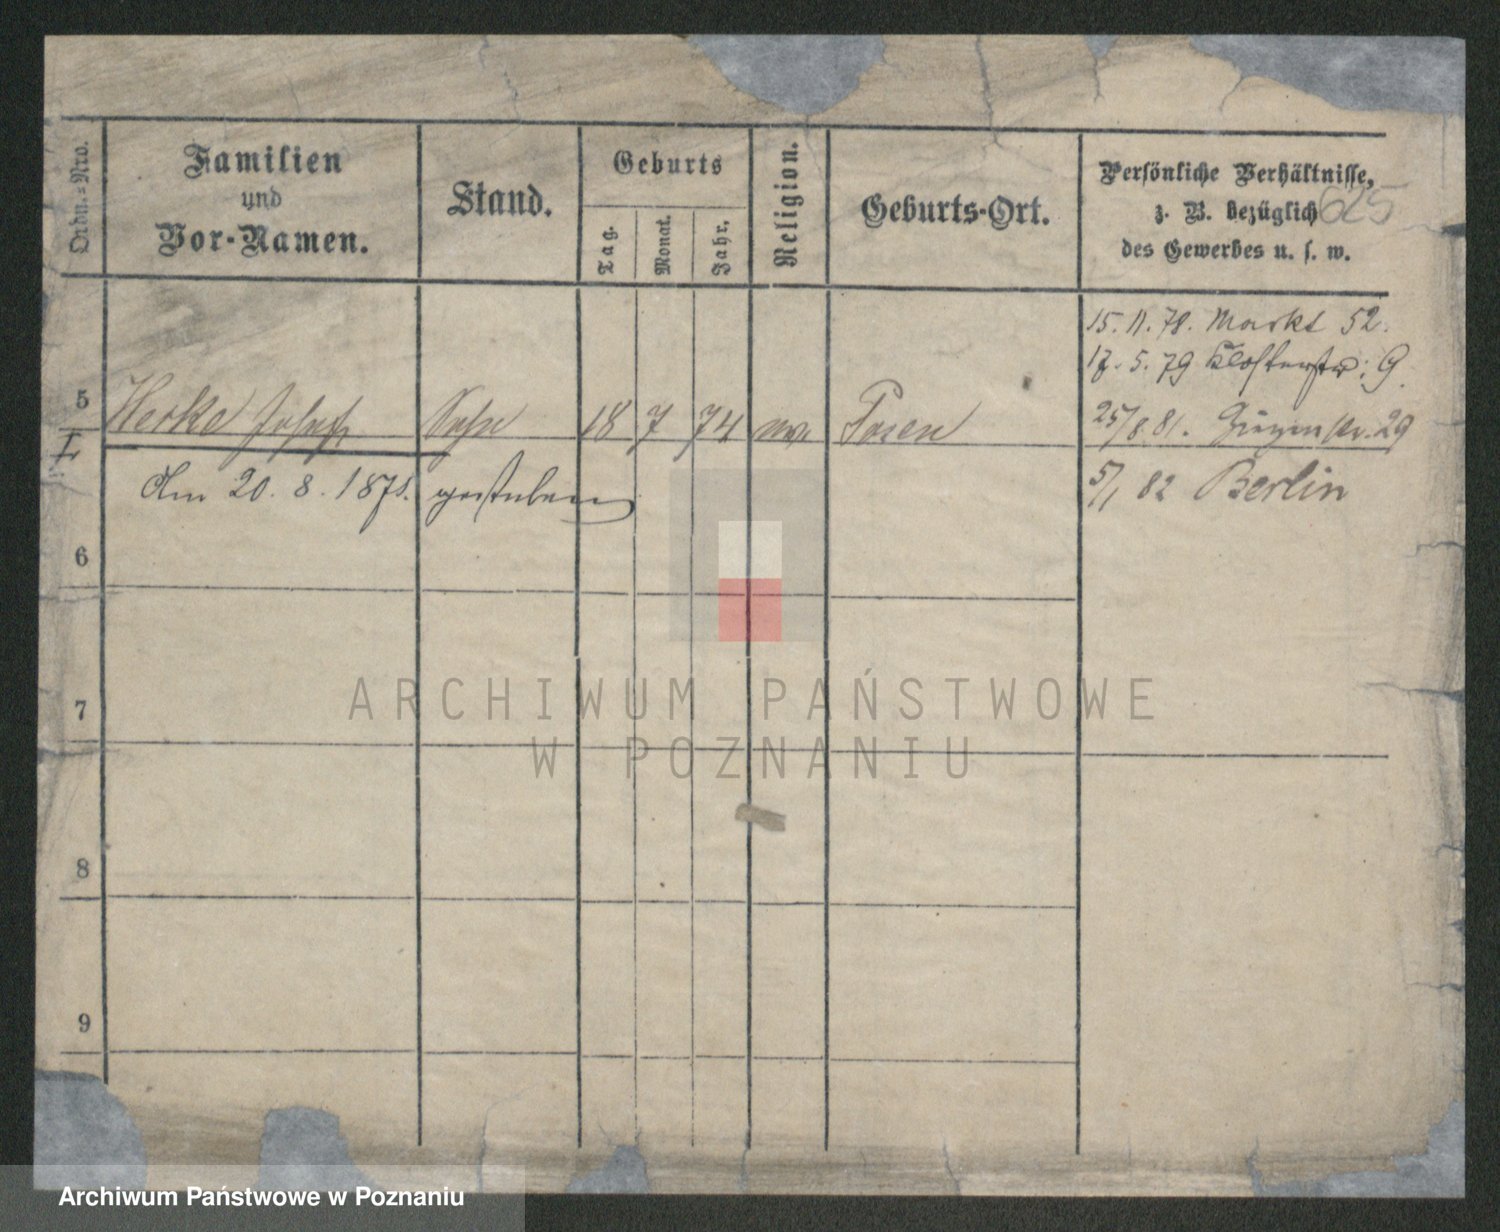 Ordn.-Nro.
Familien
und
Vor-Namen.
Stand.
Geburts
Tag.
Monat.
Jahr.
Religion.
Geburts-Ort.
Persönliche Verhältnisse,
z. B. bezüglich
des Gewerbes u. s. w.
625
15. 11. 78. Markt 52.
17. 5. 79 Klosterstr: 9.
5 Herke Joseph Sohn 18 7 74 Posen
25/8. 81. 29
Am 20. 8. gestorben
5/1 82 Berlin
6
7
8
9
ARCHIWUM PAŃSTWOWE
W POZNANIU
Archiwum Państwowe w Poznaniu